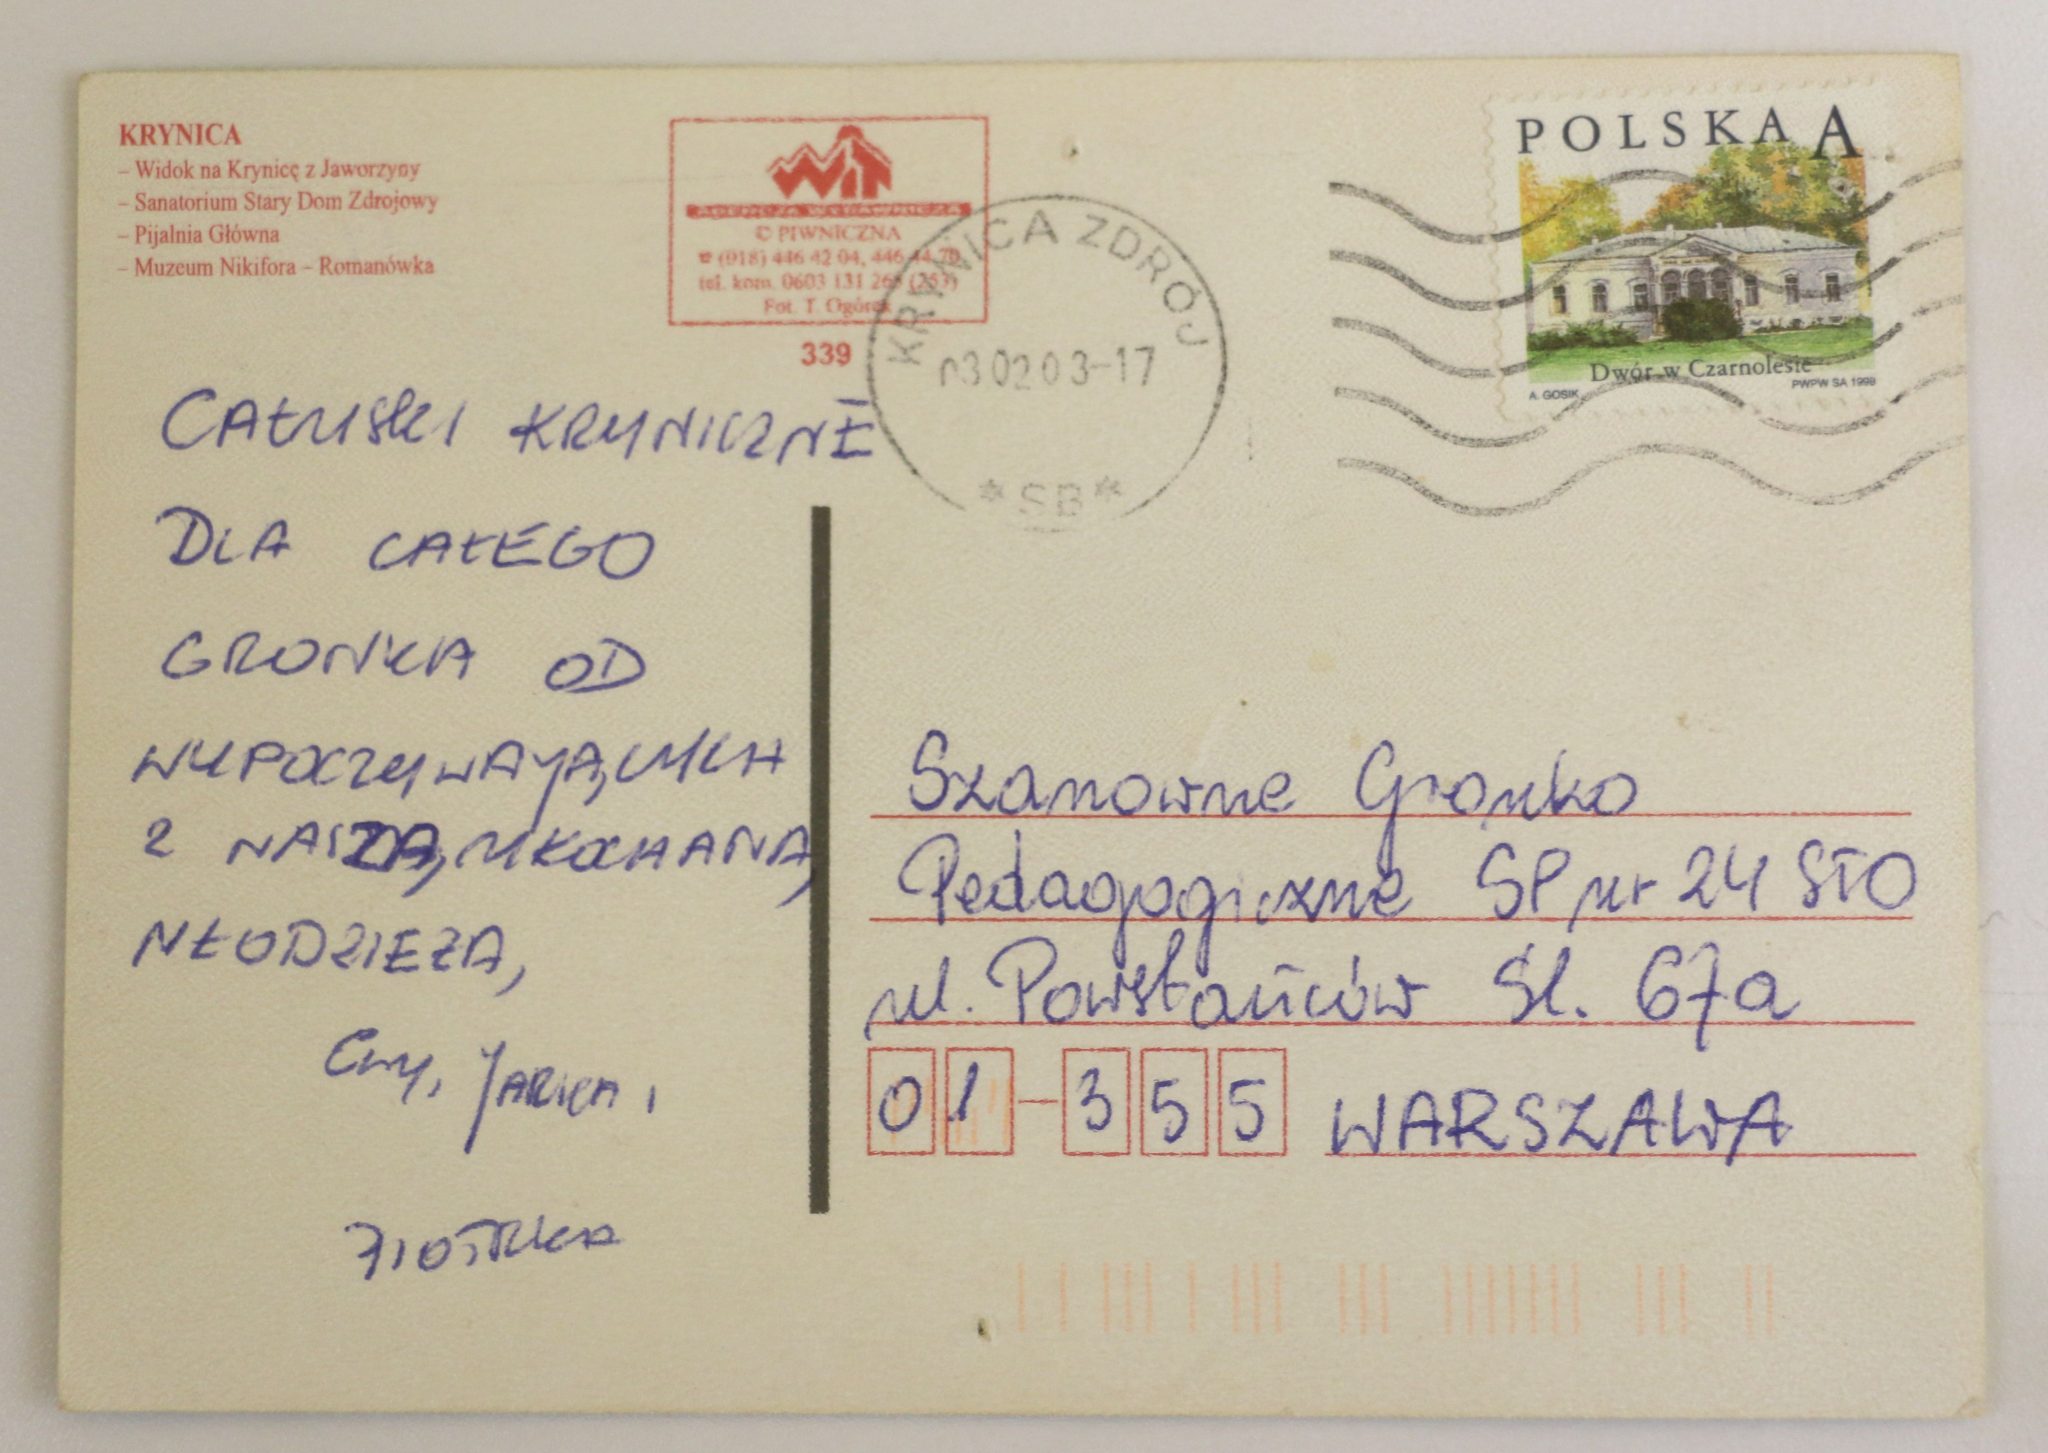 KRYNICA
– Widok na Krynicę z Jaworzyny
– Sanatorium Stary Dom Zdrojowy
– Pijalnia Główna
– Muzeum Nikifora – Romanówka
WiT
AGENCJA WYDAWNICZA
© PIWNICZNA
☎ (018) 446 42 04, 446 44 70
tel. kom. 0603 131 265 (253)
Fot. T. Ogórek
339
KRYNICA ZDRÓJ
030203-17
*SB*
POLSKA A
Dwór w Czarnolesie
A. GOSIK
PWPW SA 1998
CAŁUSKI KRYNICZNE
DLA CAŁEGO
GRONKA OD
WYPOCZYWAJĄCYCH
Z NASZĄ, UKOCHANĄ,
MŁODZIEŻĄ,
Ewy, JARKA,
PIOTRKA
Szanowne Gronko
Pedagogiczne SP nr 24 STO
ul. Powstańców Śl. 67a
01-355 WARSZAWA